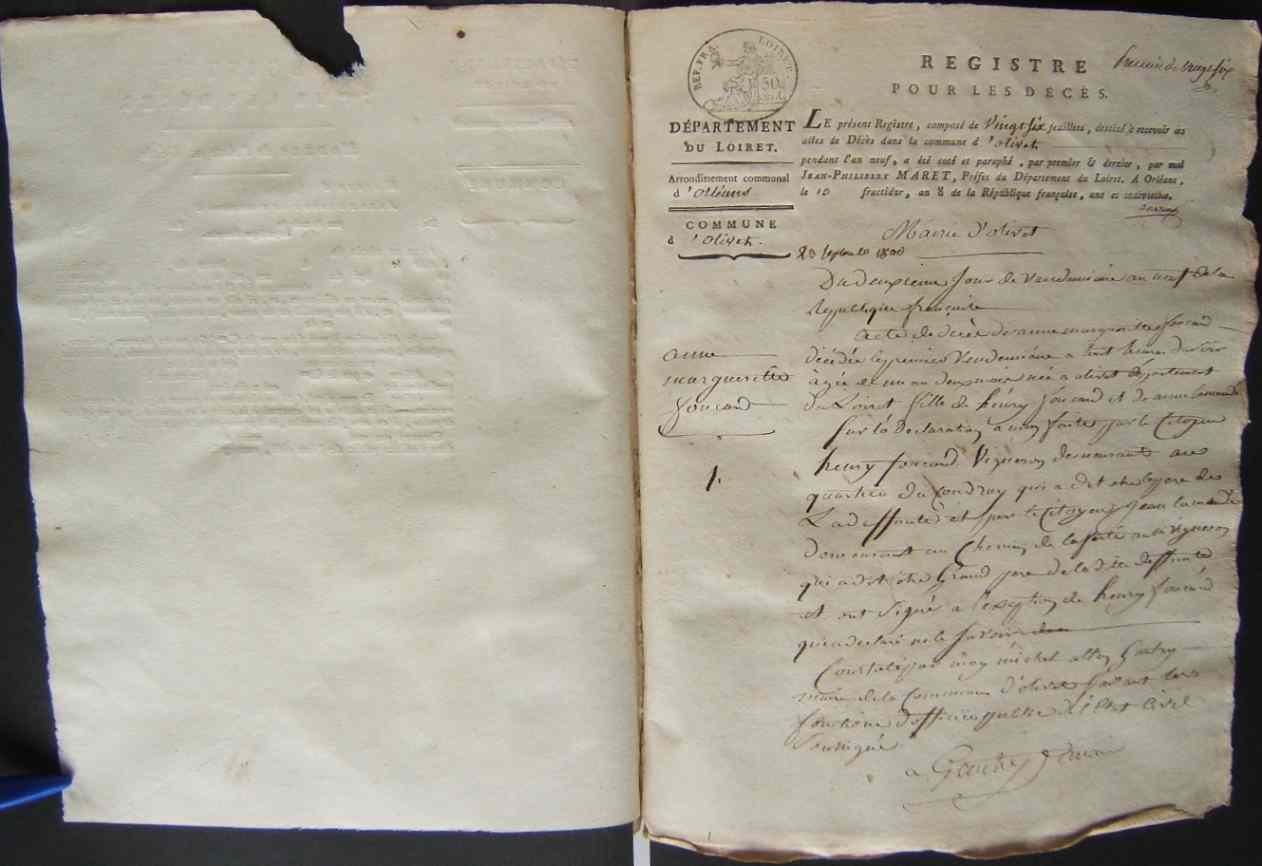 REP. FRA.
LOIRET.
50
REGISTRE
POUR LES DÉCÈS.
DÉPARTEMENT
DU LOIRET.
Arrondissement communal
d'Orléans
COMMUNE
d'Olivet.
LE présent Registre, composé de Vingt six feuillets, destiné à recevoir les
actes de Décès dans la commune d'olivet
pendant l'an neuf, a été coté et paraphé, par premier & dernier, par moi
JEAN-PHILIBERT MARET, Préfet du Département du Loiret. A Orléans,
le 10 fructidor, an 8 de la République française, une et indivisible.
Mairie d'olivet
Du deuxieme Jour de Vendemiaire an neuf de la
Republique françoise
anne
marguerite
foucard
1.
acte de décès de anne marguerite foucard
décédée le premier Vendemiaire a huit heures du soir
âgée de un an deux mois née a olivet département
du Loiret fille de henry foucard et de anne
Sur la Declaration a moy faite par le Citoyen
henry foucard Vigneron demeurant au
quartier du Condray qui a dit etre le pere de
La deffunte et par le Citoyen jean
Demeurant au Chemin de la ferté aussi vigneron
qui a dit etre Grand pere de la dite deffunte
et ont Signé a l'exception de henry foucard
qui a declaré ne le savoir
Constaté par moy michel
maire de la Commune d'olivet faisant les
fonctions d'officier public de l'Etat Civil
Soussigné